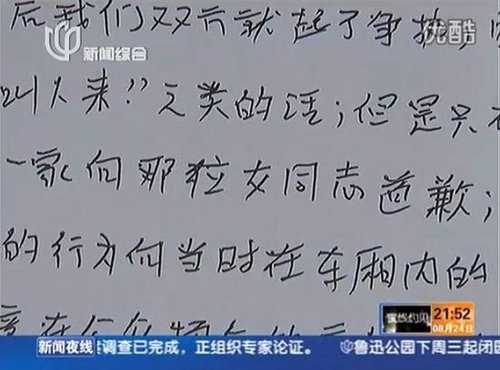 新闻综合
优酷
后我们双方就起了争执
叫人来”之类的话；但是只
一家向那位女同志道歉；
的行为向当时在车厢内的
在公众场合的
夜线约见
21:52
08月24日
新闻夜线
调查已完成，正组织专家论证。
鲁迅公园下周三起闭园